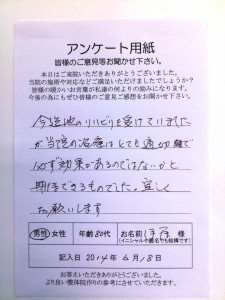 アンケート用紙
皆様のご意見等お聞かせ下さい。
本日はご来院いただきありがとうございました。
当院の施術や対応などご満足いただけましたでしょうか?
皆様の暖かいお言葉が私達の何よりの励みになります。
今後の為にもぜひ皆様のご意見ご感想をお聞かせ下さい。
今迄他のリハビリを受けていました
が当院の治療はとても適切
必ず効果があるのではないかと
期待できるものでした。宜しく
お願いします
男性 女性 年齢80代 お名前 様
(イニシャルや匿名でも結構です)
記入日 2014年 6月18日
お答えいただき
ありがとうございました。
より良い整体院作りの参考にさせていただきます。